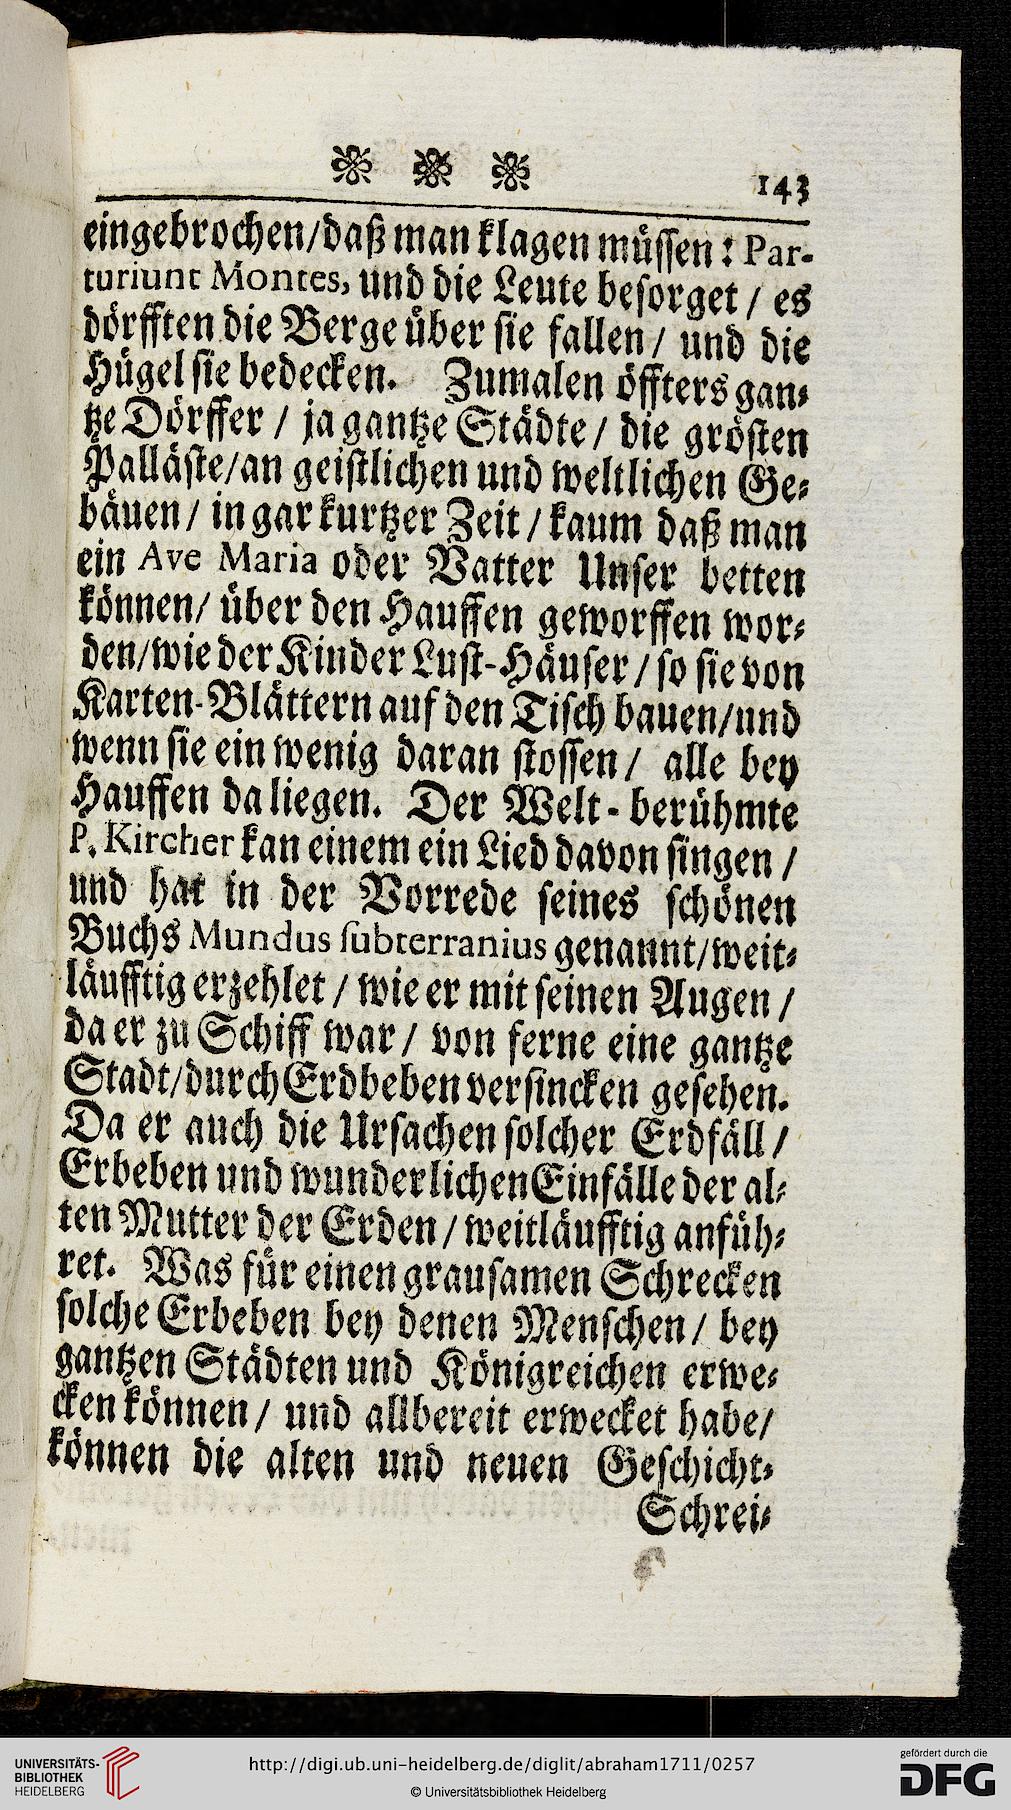 143
eingebrochen/daß man klagen müssen: Par-
turiunt Montes, und die Leute besorget / es
dörfften die Berge über sie fallen / und die
Hügel sie bedecken. Zumalen öffters gan-
tze Dörffer / ja gantze Städte / die grösten
Palläste/an geistlichen und weltlichen Ge-
bäuen / in gar kurtzer Zeit / kaum daß man
ein Ave Maria oder Vatter Unser betten
können/ über den Hauffen geworffen wor-
den/wie der Kinder Lust-Häuser / so sie von
Karten-Blättern auf den Tisch bauen/und
wenn sie ein wenig daran stossen / alle bey
Hauffen da liegen. Der Welt-berühmte
P. Kircher kan einem ein Lied davon singen /
und hat in der Vorrede seines schönen
Buchs Mundus subterranius genannt/weit-
läufftig erzehlet / wie er mit seinen Augen /
da er zu Schiff war / von ferne eine gantze
Stadt/durch Erdbeben versincken gesehen.
Da er auch die Ursachen solcher Erdfäll /
Erbeben und wunderlichen Einfälle der al-
ten Mutter der Erden / weitläufftig anfüh-
ret. Was für einen grausamen Schrecken
solche Erbeben bey denen Menschen / bey
gantzen Städten und Königreichen erwe-
cken können / und allbereit erwecket habe/
können die alten und neuen Geschicht-
Schrei-
UNIVERSITÄTS-
BIBLIOTHEK
HEIDELBERG
http://digi.ub.uni-heidelberg.de/diglit/abraham1711/0257
© Universitätsbibliothek Heidelberg
gefördert durch die
DFG